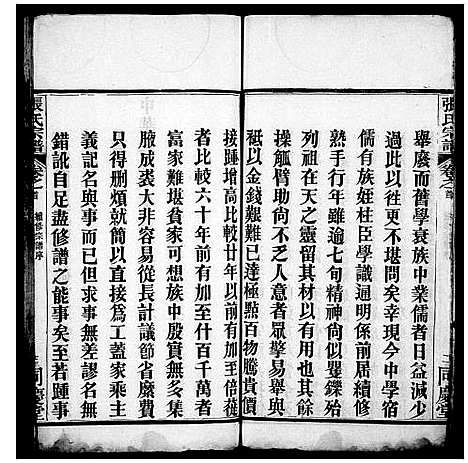 張氏宗譜
卷之首
三
同慶堂
舉廢而舊學衰族中業儒者日益減少
過此以往更不堪問矣幸現今中學宿
儒有族姪桂臣學識通明係前屆續修
熟手行年雖逾七旬精神尙去矍鑠殆
列祖在天之靈留其材以有用也其餘
操觚臂助尙不乏人意者眾擎易舉與
秪以金錢艱難已達極點百物騰貴價
接踵增高比較廿年以前有加至倍蓰
者比較六十年前有加至什百千萬者
富家難堪貧家可想族中殷實無多集
腋成裘大非容易從長計議節省縻費
只得刪煩就簡以直接為工蓋家乘主
義記名與事而已但求事無差謬名無
錯訛自足盡修譜之能事矣至若踵事
張氏宗譜
卷之首
續修宗譜序
三
同慶堂